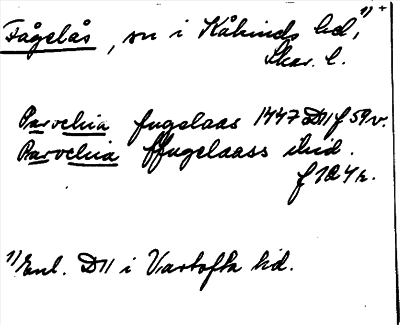 Fågelås, sn i Kåkinds hd,¹⁾ +
Skar. l.
Parvelua fugelaas 1447 D11 f 59v.
Parvelua ffugelaass ibid.
f 124r.
¹⁾ Enl. D11 i Vartofta hd.